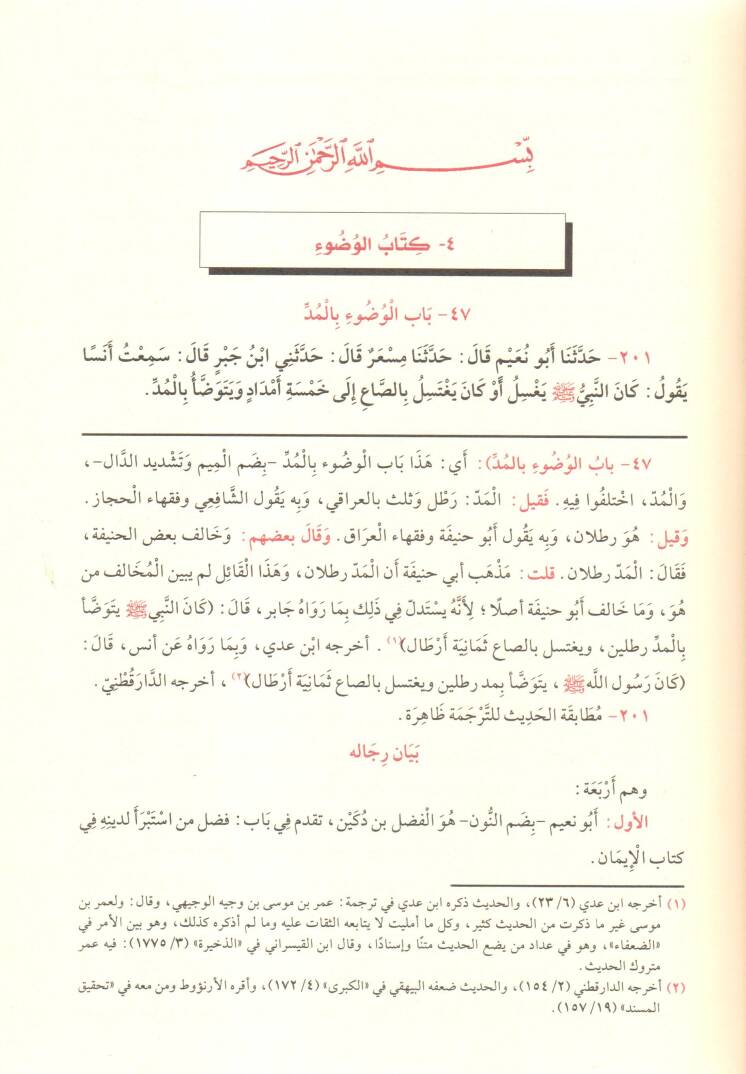 بِسْمِ ٱللَّهِ ٱلرَّحْمَٰنِ ٱلرَّحِيمِ
٤- كِتَابُ الوُضُوءِ
٤٧- بَاب الْوُضُوءِ بِالْمُدِّ
٢٠١- حَدَّثَنَا أَبُو نُعَيْمٍ قَالَ: حَدَّثَنَا مِسْعَرٌ قَالَ: حَدَّثَنِي ابْنُ جَبْرٍ قَالَ: سَمِعْتُ أَنَسًا
يَقُولُ: كَانَ النَّبِيُّ ﷺ يَغْسِلُ أَوْ كَانَ يَغْتَسِلُ بِالصَّاعِ إِلَى خَمْسَةِ أَمْدَادٍ وَيَتَوَضَّأُ بِالْمُدِّ.
٤٧- بابُ الوُضُوءِ بالمُدِّ): أَي: هَذَا بَاب الْوضُوء بِالْمُدِّ -بِضَم الْمِيم وَتَشْديد الدَّال-،
وَالْمُدّ، اخْتلفُوا فِيهِ. فَقيل: الْمَدّ: رَطْل وَثلث بالعراقي، وَبِه يَقُول الشَّافِعِي وفقهاء الْحجاز.
وَقيل: هُوَ رطلان، وَبِه يَقُول أَبُو حنيفَة وفقهاء الْعرَاق. وَقَالَ بعضهم: وَخَالف بعض الحنيفة،
فَقَالَ: الْمَدّ رطلان. قلت: مَذْهَب أبي حنيفَة أَن الْمَدّ رطلان، وَهَذَا الْقَائِل لم يبين الْمُخَالف من
هُوَ، وَمَا خَالف أَبُو حنيفَة أصلًا؛ لِأَنَّهُ يسْتَدلّ فِي ذَلِك بِمَا رَوَاهُ جَابر، قَالَ: (كَانَ النَّبِي ﷺ يتَوَضَّأ
بِالْمدِّ رطلين، ويغتسل بالصاع ثَمَانِيَة أَرْطَال)(١). أخرجه ابْن عدي، وَبِمَا رَوَاهُ عَن أنس، قَالَ:
(كَانَ رَسُول اللَّه ﷺ، يتَوَضَّأ بِمد رطلين ويغتسل بالصاع ثَمَانِيَة أَرْطَال)(٢)، أخرجه الدَّارَقُطْنِيّ.
٢٠١- مُطَابقَة الحَدِيث للتَّرْجَمَة ظَاهِرَة.
بَيَان رِجَاله
وهم أَرْبَعَة:
الأول: أَبُو نعيم -بِضَم النُّون- هُوَ الْفضل بن دُكَيْن، تقدم فِي بَاب: فضل من اسْتَبْرَأَ لدينِهِ فِي
كتاب الْإِيمَان.
(١) أخرجه ابن عدي (٦/ ٢٣)، والحديث ذكره ابن عدي في ترجمة: عمر بن موسى بن وجيه الوجيهي، وقال: ولعمر بن
موسى غير ما ذكرت من الحديث كثير، وكل ما أمليت لا يتابعه الثقات عليه وما لم أذكره كذلك، وهو بين الأمر في
«الضعفاء»، وهو في عداد من يضع الحديث متنًا وإسنادًا، وقال ابن القيسراني في «الذخيرة» (٣/ ١٧٧٥): فيه عمر
متروك الحديث.
(٢) أخرجه الدارقطني (٢/ ١٥٤)، والحديث ضعفه البيهقي في «الكبرى» (٤/ ١٧٢)، وأقره الأرنؤوط ومن معه في «تحقيق
المسند» (١٩/ ١٥٧).